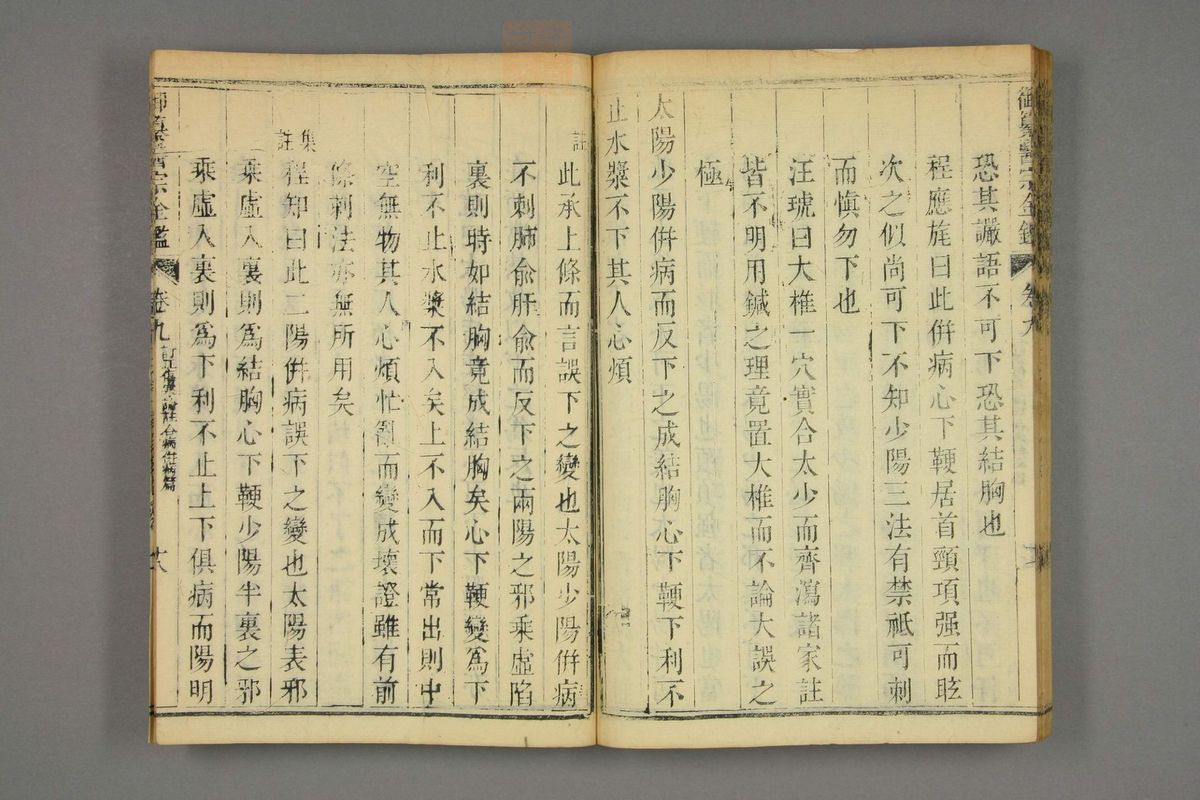 御纂醫宗金鑑 卷九
恐其譫語不可下恐其結胸也
程應旄曰此併病心下鞕居首頸項强而眩
次之似尚可下不知少陽三法有禁祗可刺
而愼勿下也
汪琥曰大椎一穴實合太少而齊瀉諸家註
皆不明用鍼之理竟置大椎而不論大誤之
極
太陽少陽併病而反下之成結胸心下鞕下利不
止水漿不下其人心煩
註
此承上條而言誤下之變也太陽少陽併病
不刺肺兪肝兪而反下之兩陽之邪乘虛陷
裏則時如結胸竟成結胸矣心下鞕變爲下
利不止水漿不入矣上不入而下常出則中
空無物其人心煩忙亂而變成壞證雖有前
條刺法亦無所用矣
集註
程知曰此二陽併病誤下之變也太陽表邪
乘虛入裏則爲結胸心下鞕少陽半裏之邪
乘虛入裏則爲下利不止上下俱病而陽明
御纂醫宗金鑑 卷九 合病併病篇